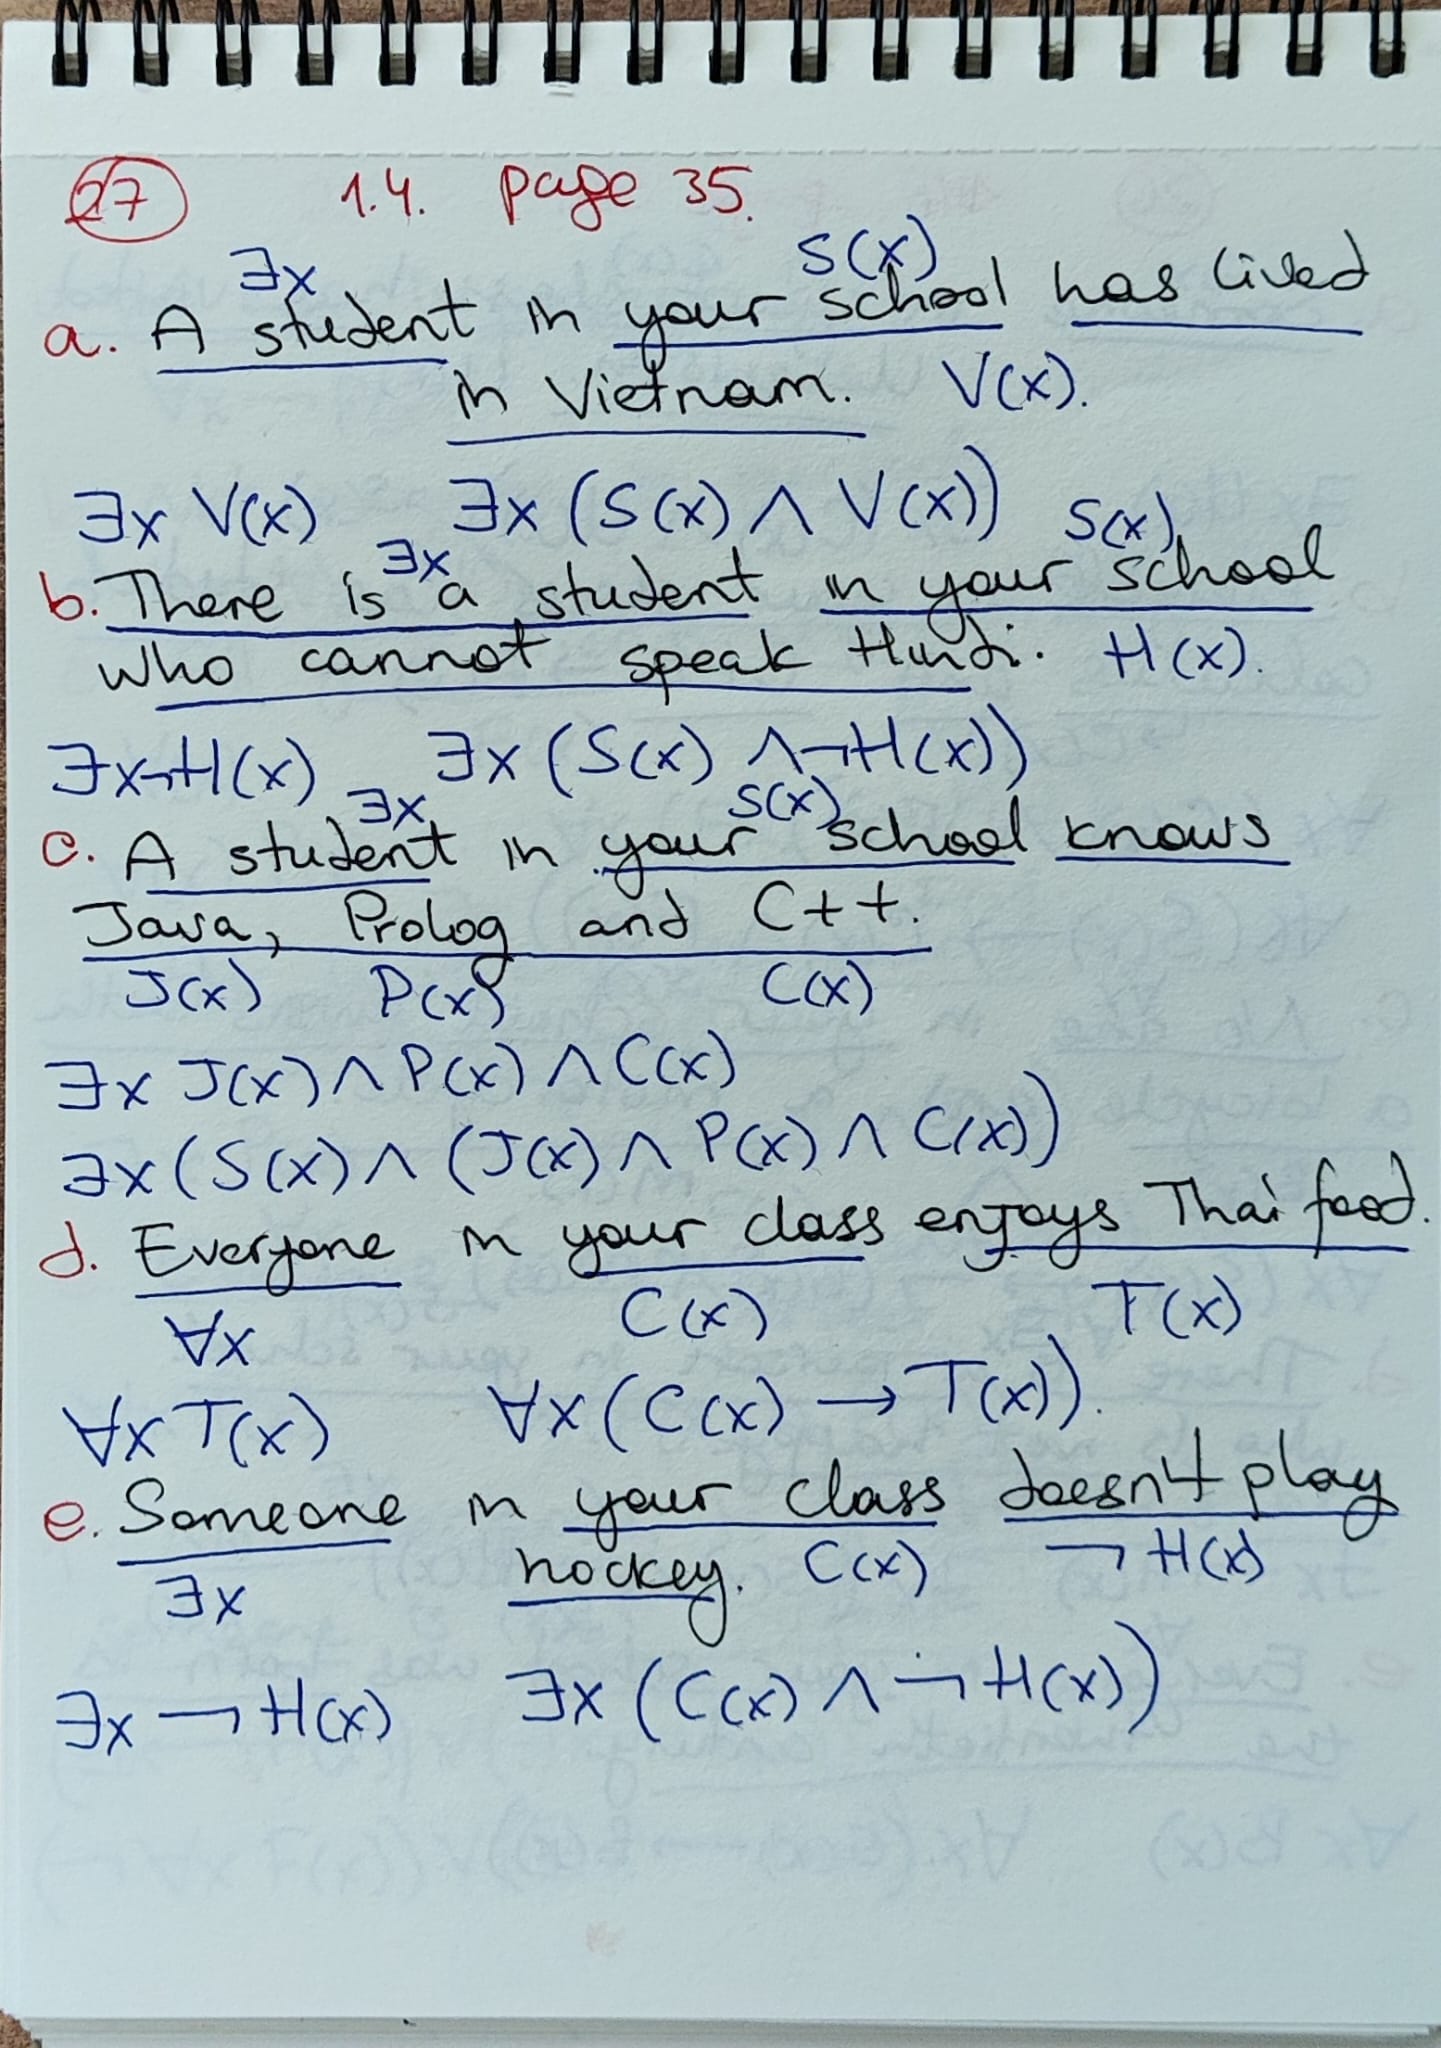 27 1.4. page 35.
∃x S(x)
a. A student in your school has lived
in Vietnam. V(x).
∃x V(x) ∃x (S(x) ∧ V(x)) S(x)
∃x
b. There is a student in your school
who cannot speak Hindi. H(x).
∃x¬H(x) ∃x (S(x) ∧¬H(x))
∃x S(x)
c. A student in your school knows
Java, Prolog and C++.
J(x) P(x) C(x)
∃x J(x) ∧ P(x) ∧ C(x)
∃x (S(x) ∧ (J(x) ∧ P(x) ∧ C(x))
d. Everyone in your class enjoys Thai food.
∀x C(x) T(x)
∀x T(x) ∀x (C(x) → T(x)).
e. Someone in your class doesn't play
hockey. C(x) ¬H(x)
∃x
∃x ¬H(x) ∃x (C(x) ∧ ¬H(x))